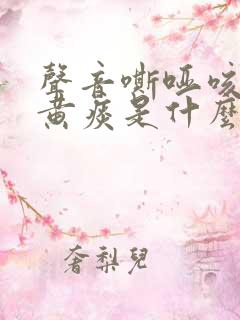 聲音嘶啞咳
黄痰是什麼
奢梨兒